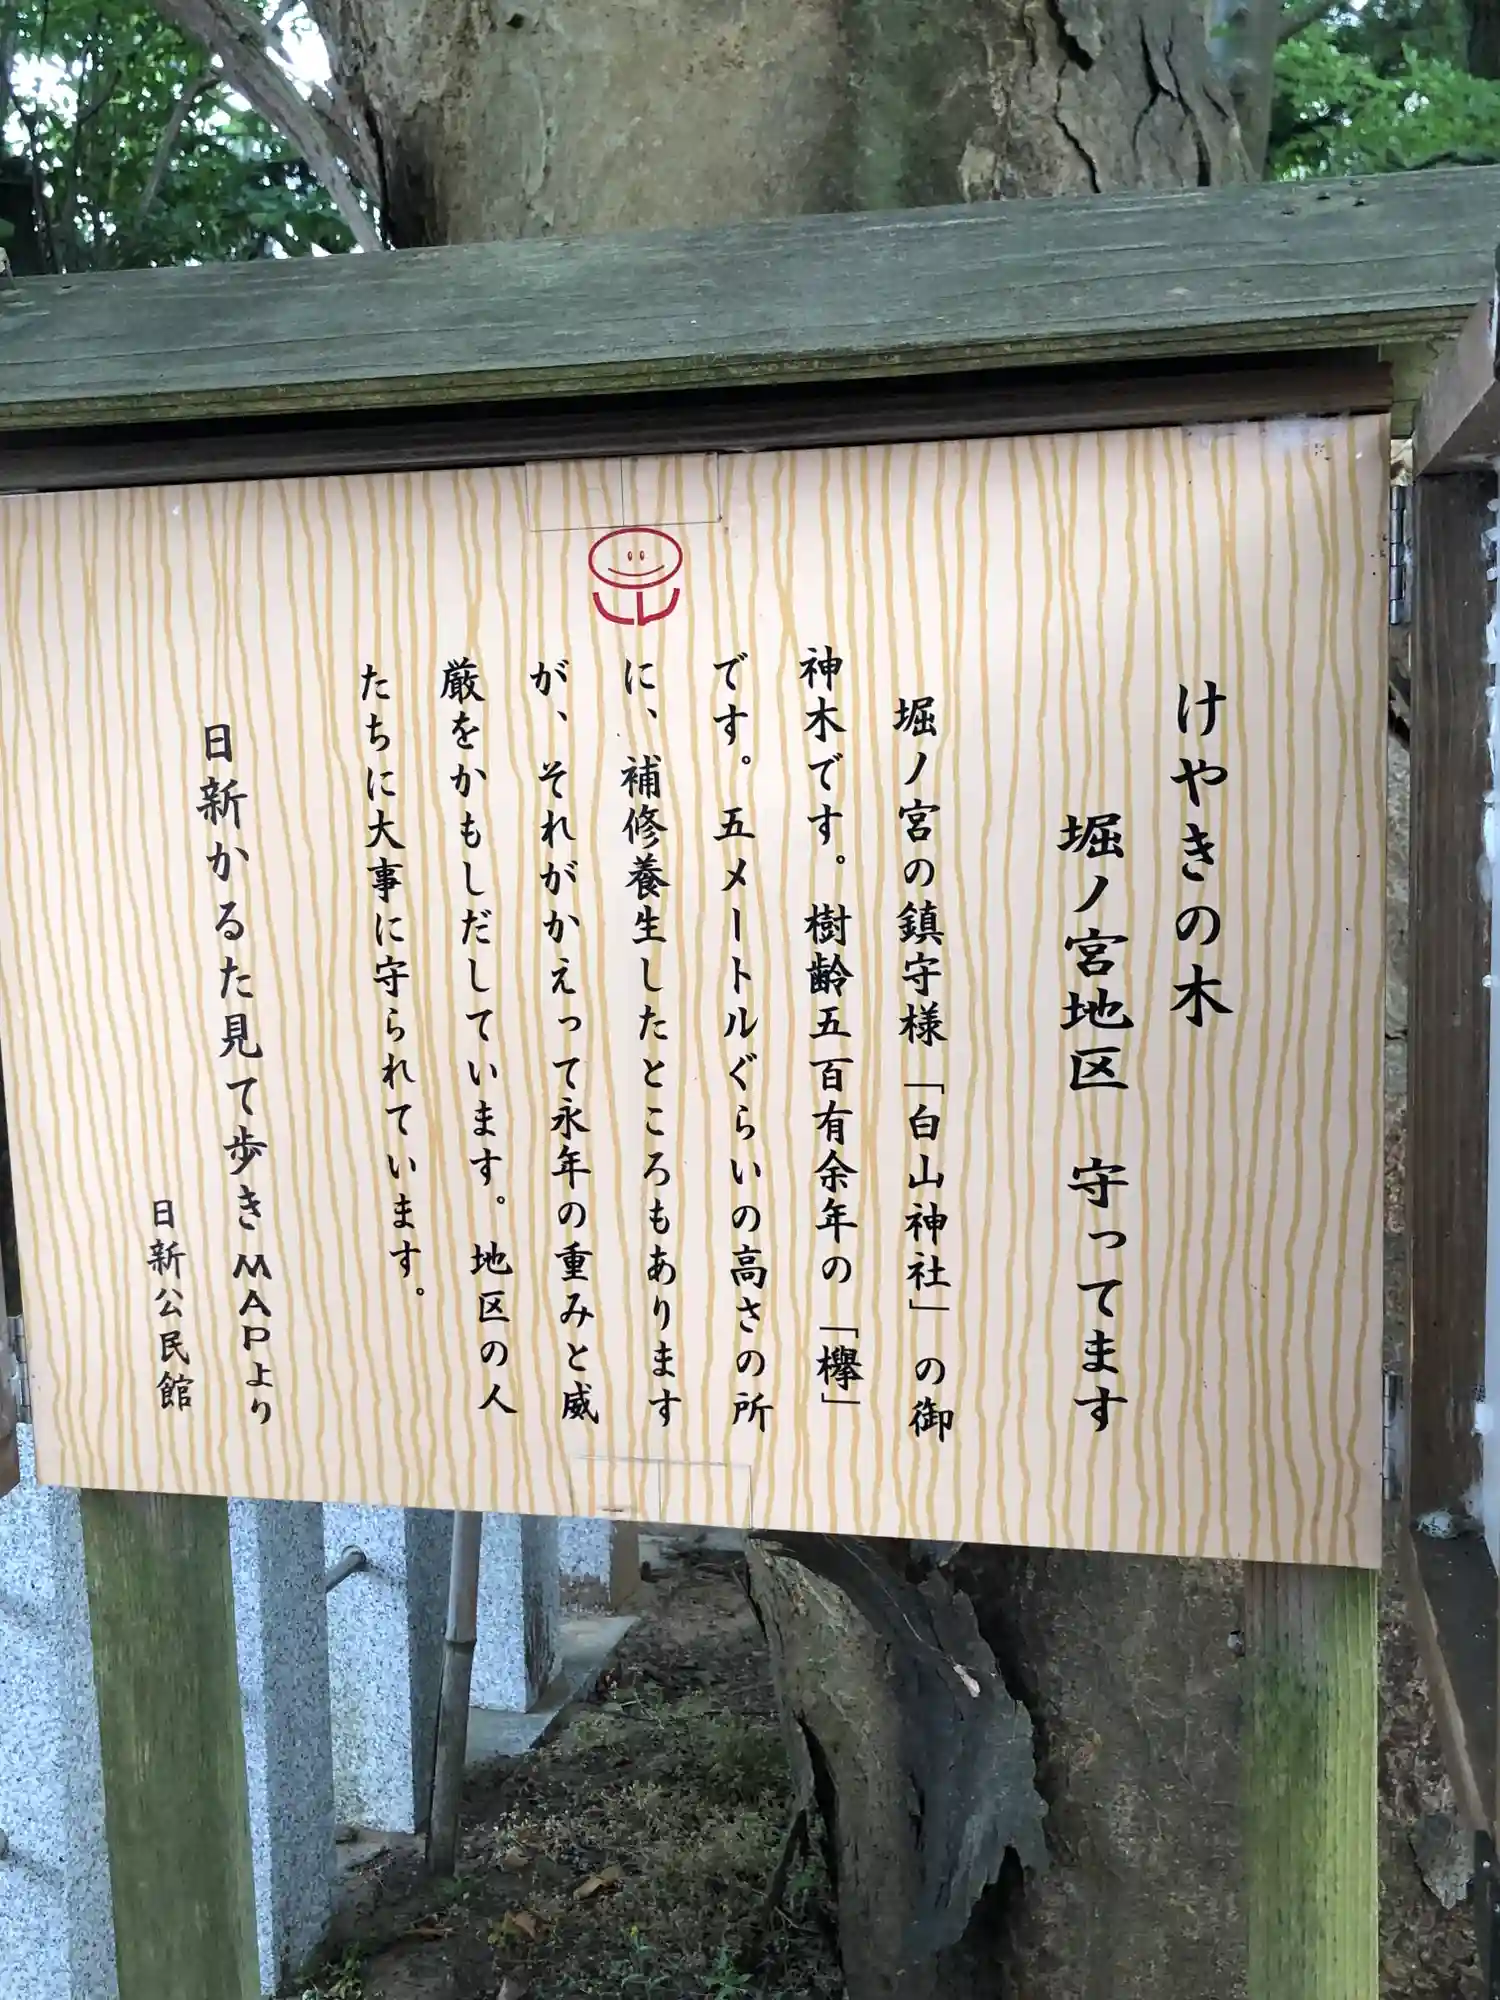 けやきの木
堀ノ宮地区　守ってます
堀ノ宮の鎮守様「白山神社」の御
神木です。樹齢五百有余年の「欅」
です。五メートルぐらいの高さの所
に、補修養生したところもあります
が、それがかえって永年の重みと威
厳をかもしだしています。地区の人
たちに大事に守られています。
日新かるた見て歩きMAPより
日新公民館